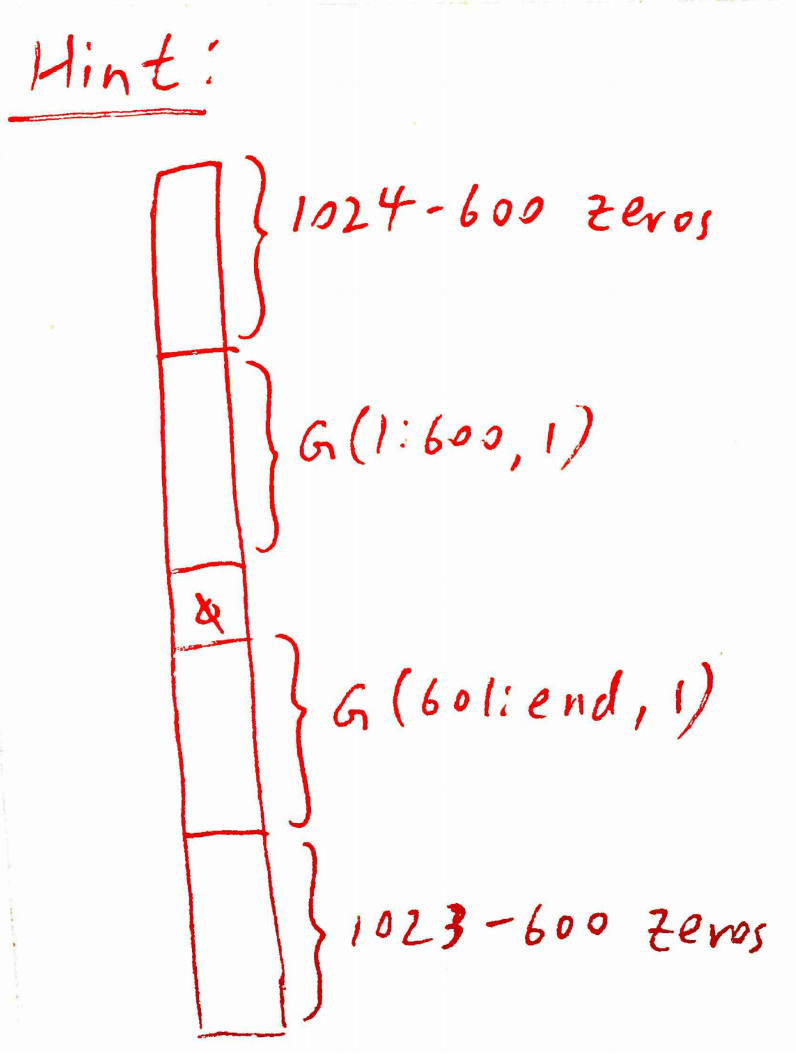 Hint:
1024-600 zeros
G(1:600, 1)
G(601:end, 1)
1023-600 zeros